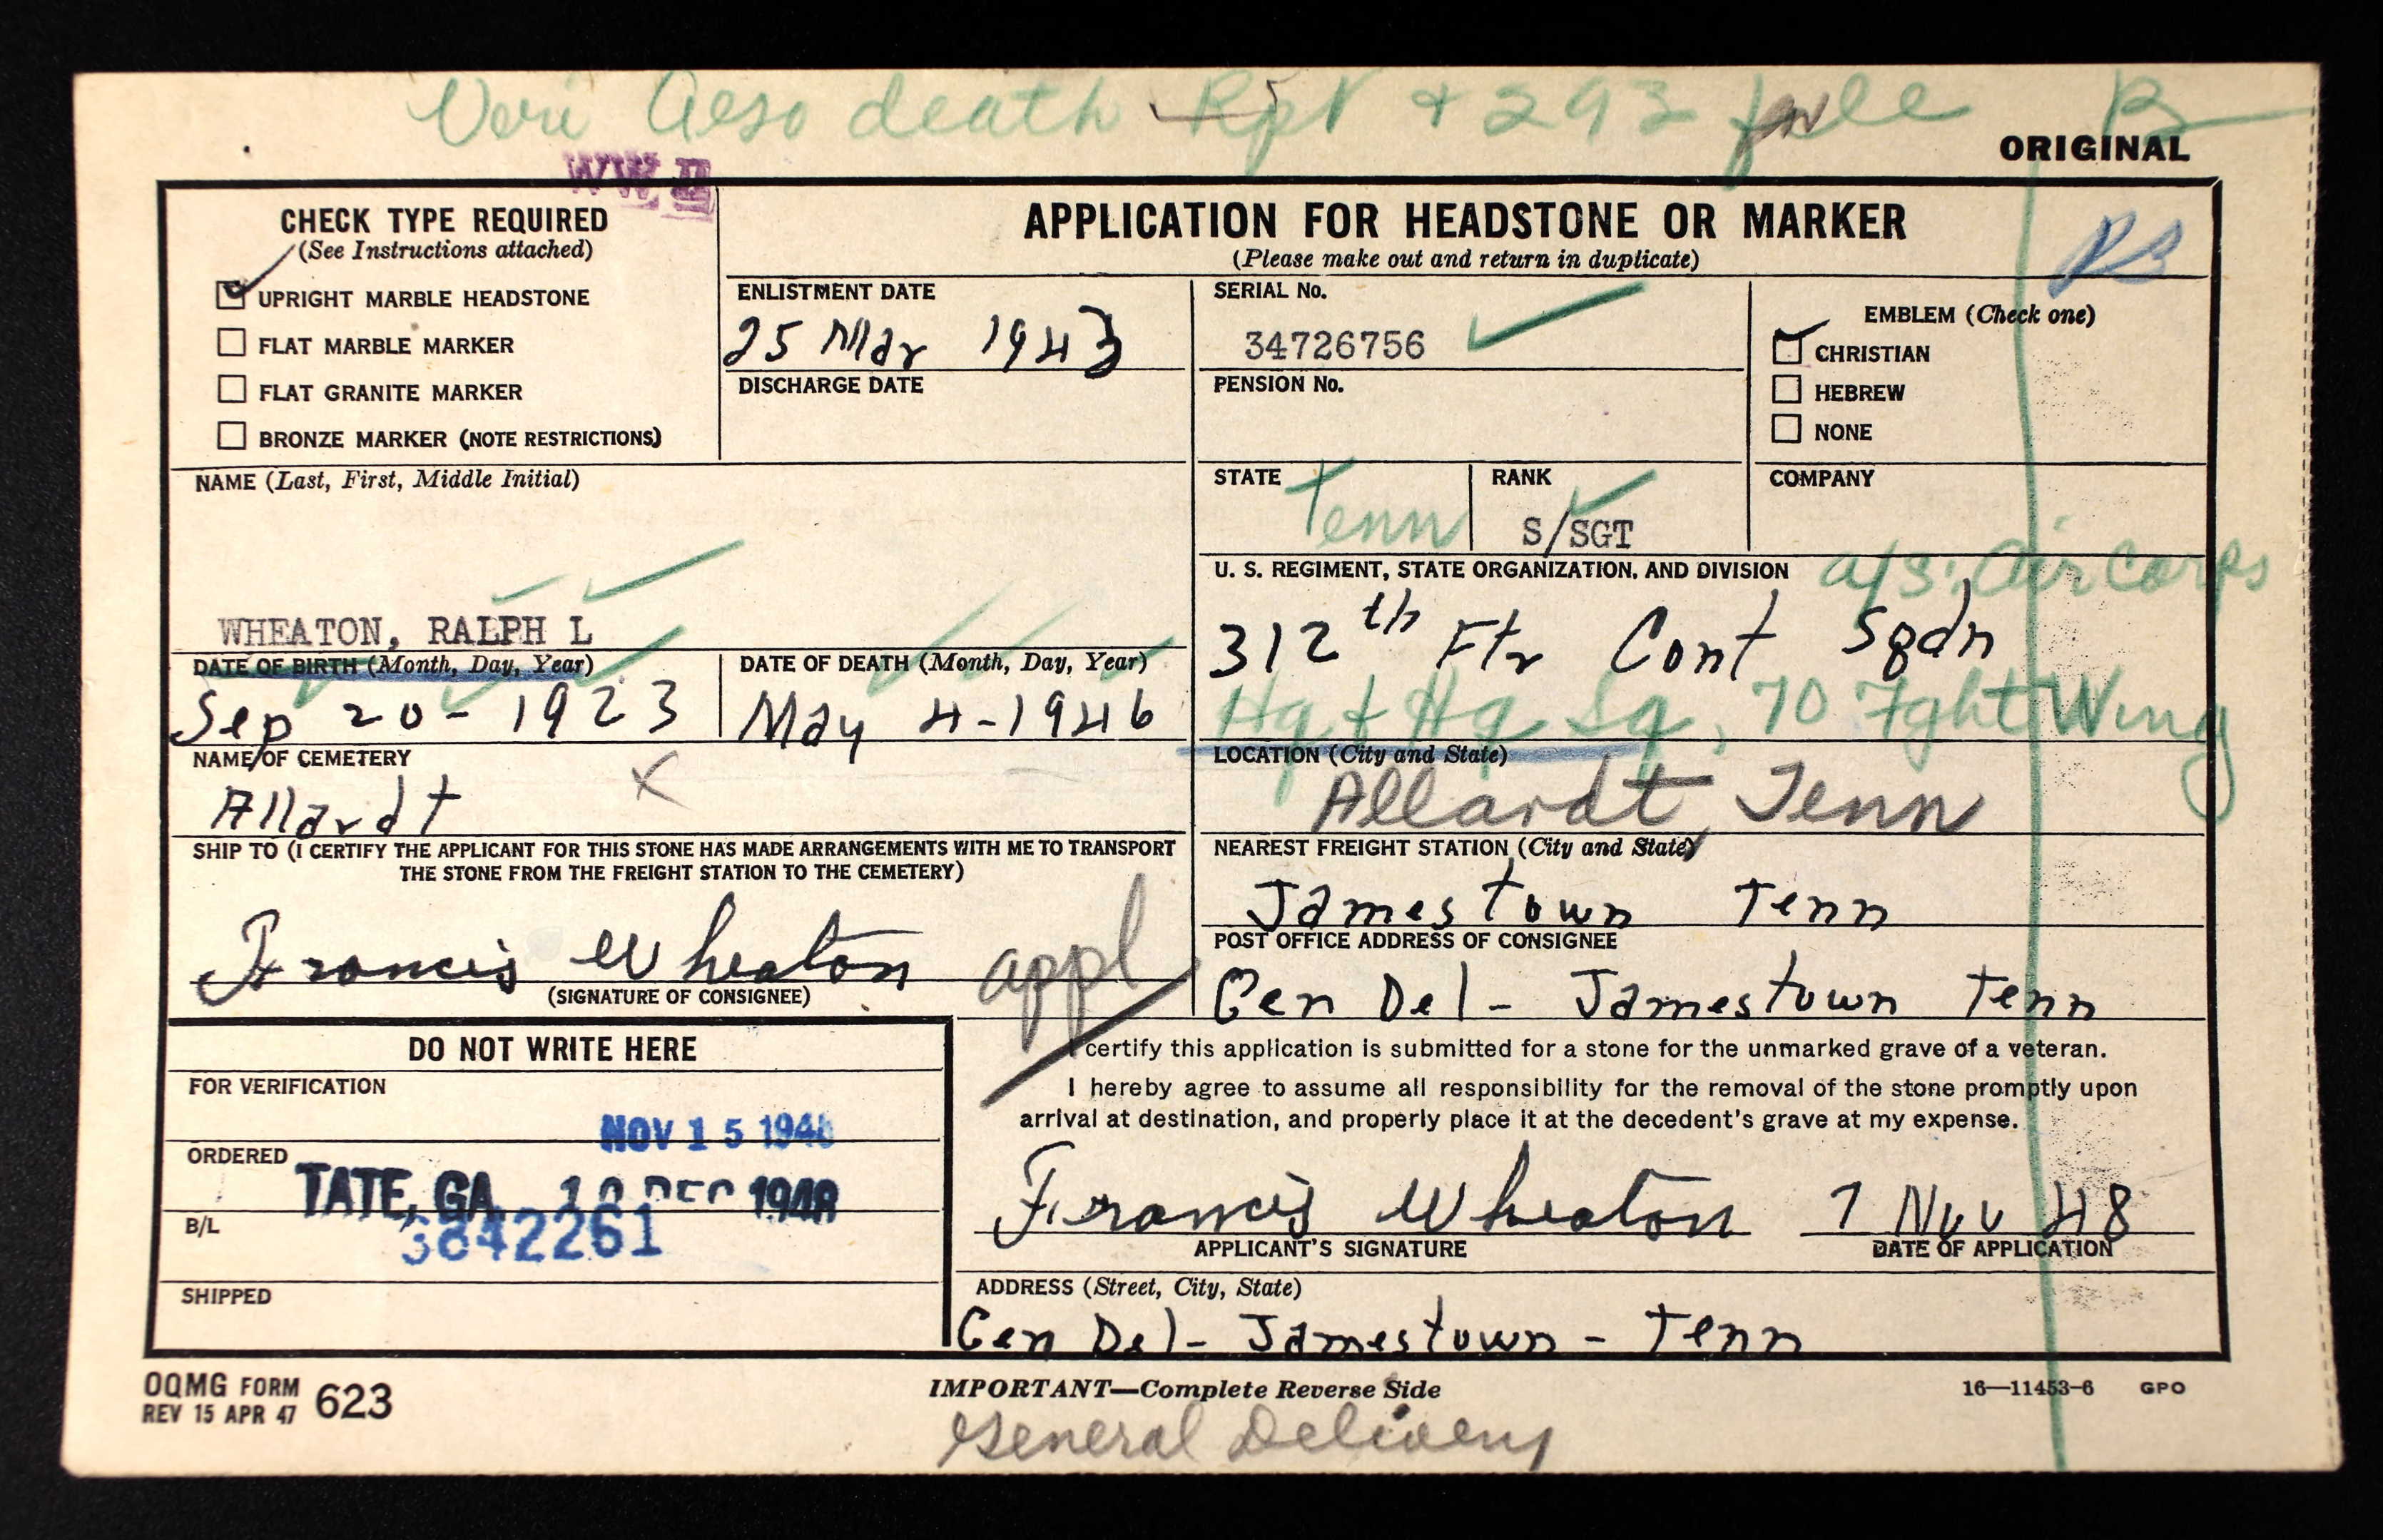 Veri Aeso death Rpt + 293 file B
ORIGINAL
WW II
CHECK TYPE REQUIRED
(See Instructions attached)
UPRIGHT MARBLE HEADSTONE
FLAT MARBLE MARKER
FLAT GRANITE MARKER
BRONZE MARKER (NOTE RESTRICTIONS)
APPLICATION FOR HEADSTONE OR MARKER
(Please make out and return in duplicate)
ENLISTMENT DATE
25 Mar 1943
DISCHARGE DATE
SERIAL No.
34726756
PENSION No.
EMBLEM (Check one)
CHRISTIAN
HEBREW
NONE
NAME (Last, First, Middle Initial)
WHEATON, RALPH L
STATE
Tenn
RANK
S/SGT
COMPANY
U. S. REGIMENT, STATE ORGANIZATION, AND DIVISION
a/s. Air Corps
312th Ftr Cont Sqdn
Hq & Hq Sq, 70 Fght Wing
DATE OF BIRTH (Month, Day, Year)
Sep 20-1923
DATE OF DEATH (Month, Day, Year)
May 4-1946
NAME OF CEMETERY
Allardt X
LOCATION (City and State)
Allardt, Tenn
SHIP TO (I CERTIFY THE APPLICANT FOR THIS STONE HAS MADE ARRANGEMENTS WITH ME TO TRANSPORT
THE STONE FROM THE FREIGHT STATION TO THE CEMETERY)
Francis Wheaton
appl
(SIGNATURE OF CONSIGNEE)
NEAREST FREIGHT STATION (City and State)
Jamestown Tenn
POST OFFICE ADDRESS OF CONSIGNEE
Gen Del- Jamestown Tenn
DO NOT WRITE HERE
FOR VERIFICATION
NOV 15 1948
ORDERED
TATE, GA. 10 DEC 1948
B/L
3842261
SHIPPED
I certify this application is submitted for a stone for the unmarked grave of a veteran.
I hereby agree to assume all responsibility for the removal of the stone promptly upon
arrival at destination, and properly place it at the decedent's grave at my expense.
Francis Wheaton 7 Nov 48
APPLICANT'S SIGNATURE
DATE OF APPLICATION
ADDRESS (Street, City, State)
Gen Del- Jamestown - Tenn
OQMG FORM
REV 15 APR 47 623
IMPORTANT—Complete Reverse Side
16—11453-6 GPO
General Delivery